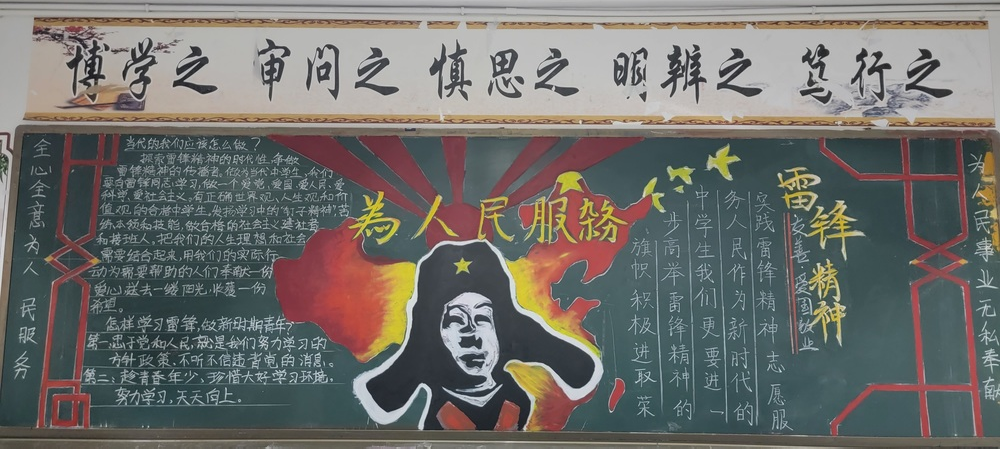 博学之 审问之 慎思之 明辨之 笃行之
全心全意为人民服务
当代的我们应该怎么做？
探索雷锋精神的时代性，争做
雷锋精神的传播者。作为当代中学生，我们
要向雷锋同志学习，做一个爱党、爱国、爱人民、爱
科学、爱社会主义，有正确世界观、人生观和价
值观的合格中学生。发扬学习中的"钉子精神"，苦
练本领和技能，做合格的社会主义建设者
和接班人，把我们的人生理想和社会
需要结合起来，用我们的实际行
动为需要帮助的人们奉献一份
爱心，送去一缕阳光，收获一份
希望。
怎样学习雷锋，做新时期青年？
第一，忠于党和人民，做是我们努力学习的
方针政策，不听不信违背党的消息。
第二、趁青春年少，珍惜大好学习环境，
努力学习，天天向上。
為人民服務
雷锋精神
友善 爱国敬业
实践雷锋精神志愿服
务人民作为新时代的
中学生我们更要进一
步高举雷锋精神的
旗帜积极进取荣
为人民事业无私奉献